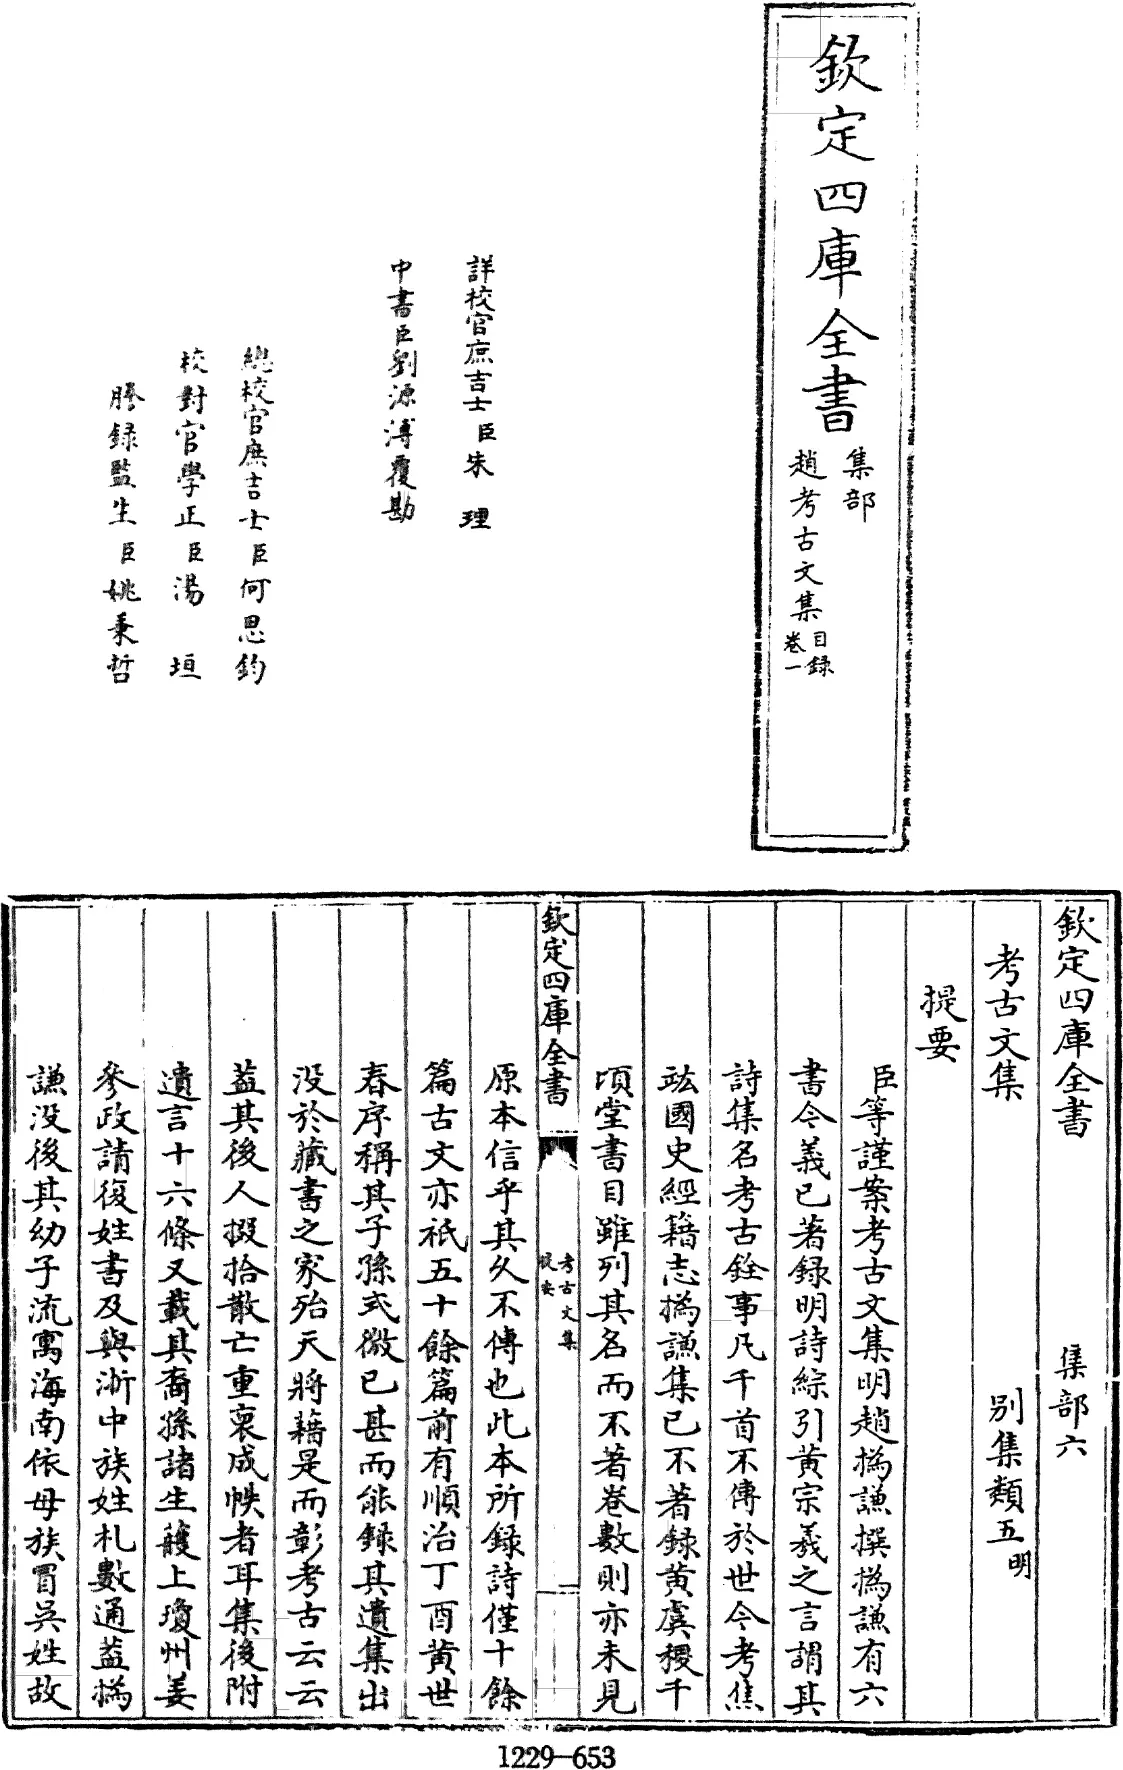 欽定四庫全書
集部
趙考古文集
目録
卷一
詳校官庶吉士臣朱理
中書臣劉源溥覆勘
總校官庶吉士臣何思鈞
校對官學正臣湯垣
謄録監生臣姚秉哲
欽定四庫全書
集部六
考古文集
別集類五明
提要
臣等謹案考古文集明趙撝謙撰撝謙有六
書今義已著録明詩綜引黄宗羲之言謂其
詩集名考古銓事凡千首不傳於世今考焦
竑國史經籍志撝謙集已不著録黄虞稷千
頃堂書目雖列其名而不著卷數則亦未見
欽定四庫全書
考古文集
提要
一
原本信乎其久不傳也此本所録詩僅十餘
篇古文亦祇五十餘篇前有順治丁酉黄世
春序稱其子孫式微已甚而能録其遺集出
没於藏書之家殆天將藉是而彰考古云云
葢其後人掇拾散亡重裒成帙者耳集後附
遺言十六條又載其裔孫諸生頀上瓊州姜
參政請復姓書及與浙中族姓札數通葢撝
謙没後其幼子流寓海南依母族冒吳姓故
1229—653